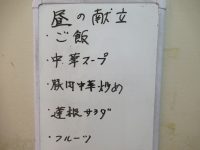 昼の献立
・ご飯
・中華スープ
・豚肉中華炒め
・蓮根サラダ
・フルーツ